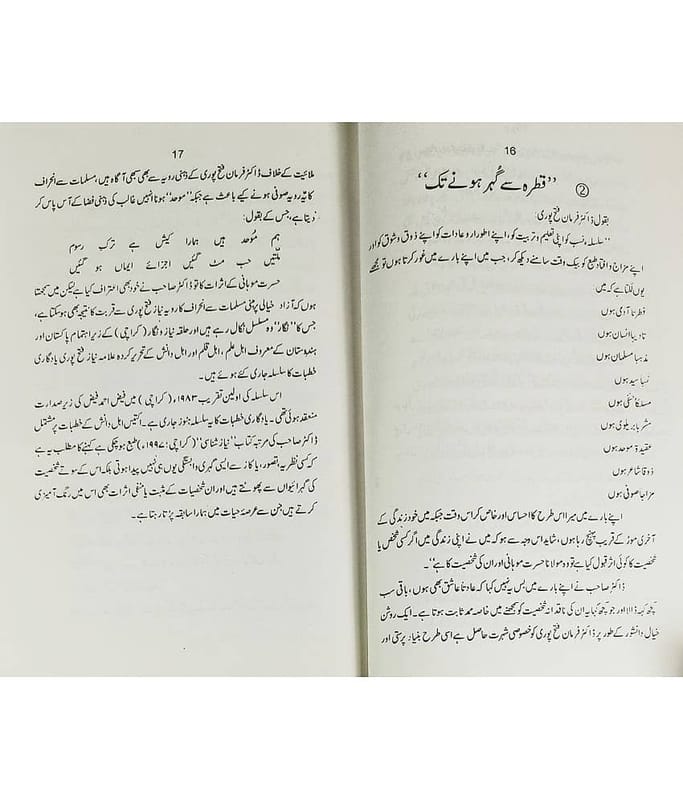 16
② ’’قطرہ سے گہر ہونے تک‘‘
بقول ڈاکٹر فرمان فتح پوری:
’’سلسلہ نسب کو اپنی تعلیم و تربیت کو، اپنے اطوار و عادات کو اپنے ذوق و شوق کو اور
اپنے مزاج و افتاد طبع کو بیک وقت سامنے دیکھ کر، جب میں اپنے بارے میں غور کرتا ہوں تو مجھے
یوں لگتا ہے کہ میں
فطرتاً آدمی ہوں
تادیباً انسان ہوں
مذہباً مسلمان ہوں
نسباً سید ہوں
مسلکاً سنی ہوں
مشرباً بریلوی ہوں
عقیدۃً موحد ہوں
ذوقاً شاعر ہوں
مزاجاً صوفی ہوں
اپنے بارے میں میرا اس طرح کا احساس اور خاص کر اس وقت جبکہ میں خود زندگی کے
آخری موڑ کے قریب پہنچ رہا ہوں، شاید اس وجہ سے ہو کہ میں نے اپنی زندگی میں اگر کسی شخص یا
شخصیت کا کوئی اثر قبول کیا ہے تو وہ مولانا حسرت موہانی اور ان کی شخصیت کا ہے‘‘۔
ڈاکٹر صاحب نے اپنے بارے میں بس یہ نہیں کہا کہ عادتاً عاشق بھی ہوں، باقی سب
کچھ کہہ ڈالا اور جو کچھ کہا یہ ان کی ناقدانہ شخصیت کو سمجھنے میں خاصہ ممد ثابت ہوتا ہے۔ ایک روشن
خیال دانشور کے طور پر ڈاکٹر فرمان فتح پوری کو خصوصی شہرت حاصل ہے اسی طرح بنیاد پرستی اور
17
ملائیت کے خلاف ڈاکٹر فرمان فتح پوری کے ذہنی رویہ سے بھی سبھی آگاہ ہیں، مسلمات سے انحراف
کا یہ رویہ صوفی ہونے کے باعث ہے جبکہ ’’موحد‘‘ ہونا انہیں غالب کی ذہنی فضا کے آس پاس کر
دیتا ہے، جس کے بقول:
ہم مُوحد ہیں ہمارا کیش ہے ترکِ رسوم
ملتیں جب مٹ گئیں اجزائے ایماں ہو گئیں
حسرت موہانی کے اثرات کا تو ڈاکٹر صاحب نے خود بھی اعتراف کیا ہے لیکن میں سمجھتا
ہوں کہ آزاد خیالی پر مبنی مسلمات سے انحراف کا رویہ نیاز فتح پوری سے قربت کا نتیجہ بھی ہو سکتا ہے،
جس کا ’’نگار‘‘ وہ مسلسل نکال رہے ہیں اور حلقہ نیاز و نگار (کراچی) کے زیر اہتمام پاکستان اور
ہندوستان کے معروف اہل علم، اہل قلم اور اہل دانش کے تحریر کردہ علامہ نیاز فتح پوری یادگاری
خطبات کا سلسلہ جاری کئے ہوئے ہیں۔
اس سلسلہ کی اولین تقریب ۱۹۸۳ء (کراچی) میں فیض احمد فیض کی زیر صدارت
منعقد ہوئی تھی۔ یادگاری خطبات کا یہ سلسلہ ہنوز جاری ہے۔ اکتیس اہل دانش کے خطبات پر مشتمل
ڈاکٹر صاحب کی مرتبہ کتاب ’’نیاز شناسی‘‘ (کراچی: ۱۹۹۷ء) طبع ہو چکی ہے کہنے کا مطلب یہ ہے
کہ کسی نظریہ، تصور، یا کاز سے ایسی گہری وابستگی یوں ہی نہیں پیدا ہوتی بلکہ اس کے سوتے شخصیت
کی گہرائیوں سے پھوٹتے ہیں اور ان شخصیات کے مثبت یا منفی اثرات بھی اس میں رنگ آمیزی
کرتے ہیں جن سے عرصۂ حیات میں ہمارا سابقہ پڑتا رہتا ہے۔